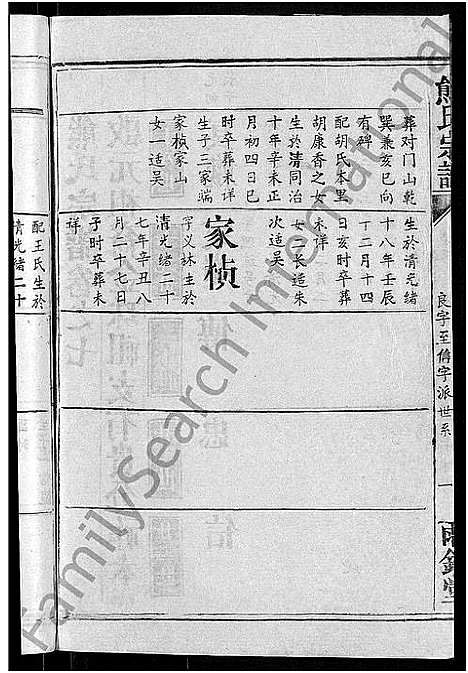 熊氏宗譜
良字至信字派世系
一
葬对门山乾
巽兼亥巳向
有碑
配胡氏本里
胡康香之女
生於清同治
十年辛未正
月初四日巳
时卒葬未详
生子三家瑞
家楨家山
女一适吴
生於清光緒
十八年壬辰
十二月十四
日亥时卒葬
未详
女二长适朱
次适吴
家楨
字义林生於
清光緒二十
七年辛丑八
月二十七日
子时卒葬未
祥
配王氏生於
清光緒二十
FamilySearch International